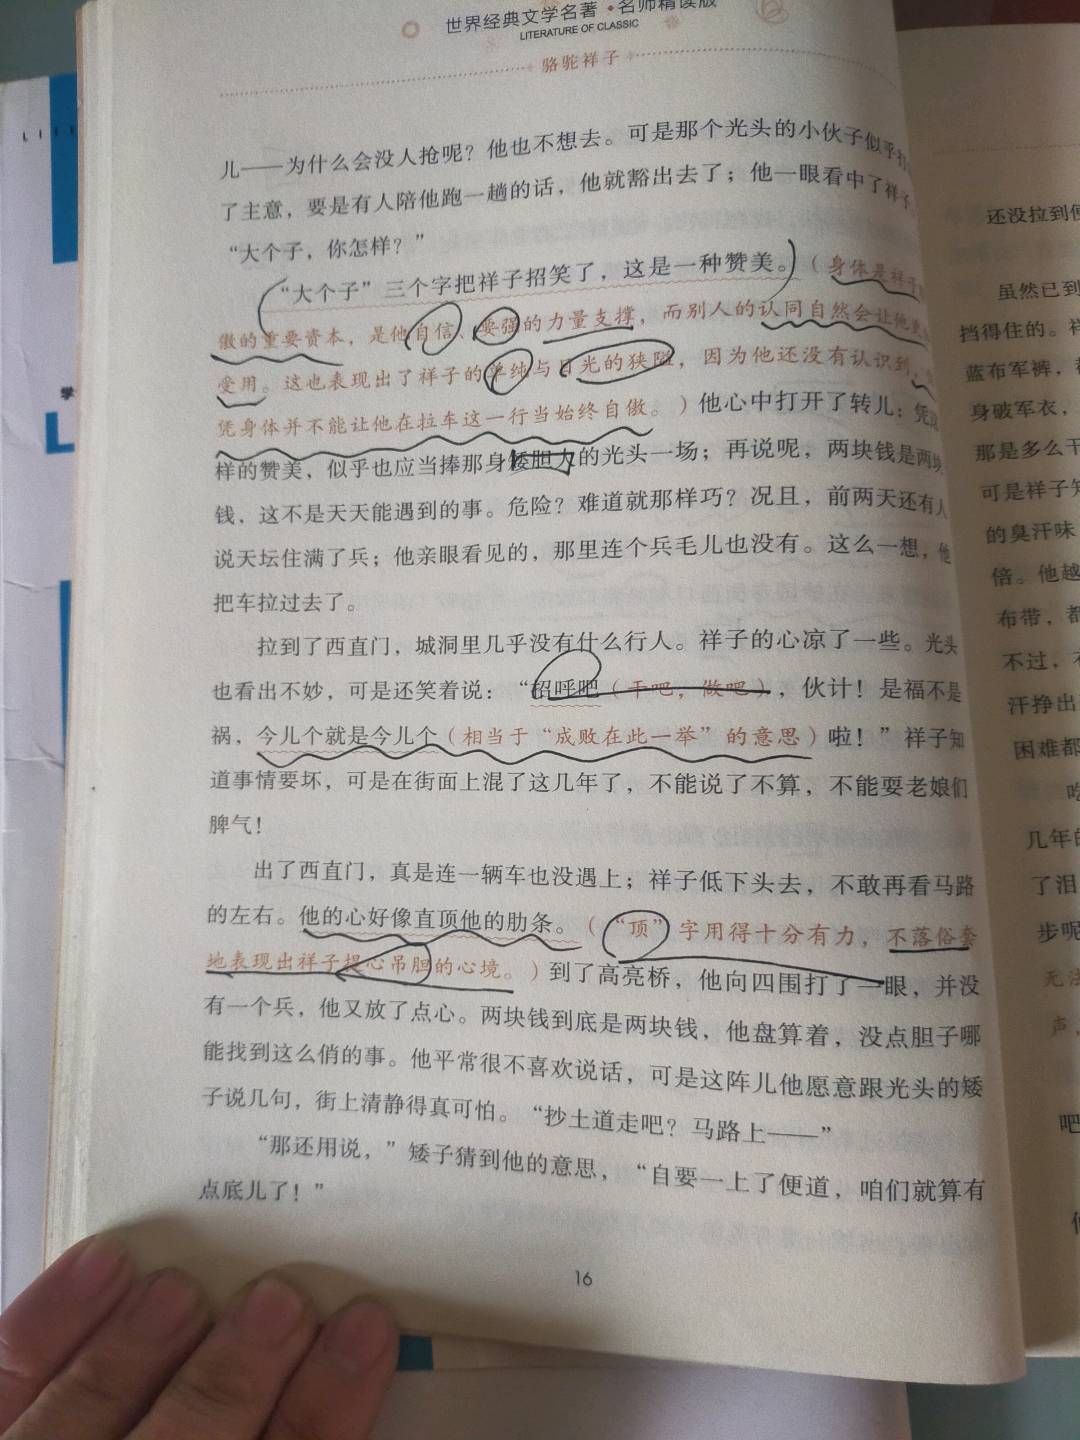 世界经典文学名著·名师精读版
LITERATURE OF CLASSIC
骆驼祥子
儿——为什么会没人抢呢？他也不想去。可是那个光头的小伙子似乎打
了主意，要是有人陪他跑一趟的话，他就豁出去了；他一眼看中了祥子
“大个子，你怎样？”
“大个子”三个字把祥子招笑了，这是一种赞美。（身体是祥子
傲的重要资本，是他自信、要强的力量支撑，而别人的认同自然会让他
受用。这也表现出了祥子的单纯与目光的狭隘，因为他还没有认识到，
凭身体并不能让他在拉车这一行当始终自傲。）他心中打开了转儿：凭
样的赞美，似乎也应当捧那身矮胆大的光头一场；再说呢，两块钱是两块
钱，这不是天天能遇到的事。危险？难道就那样巧？况且，前两天还有人
说天坛住满了兵；他亲眼看见的，那里连个兵毛儿也没有。这么一想，他
把车拉过去了。
拉到了西直门，城洞里几乎没有什么行人。祥子的心凉了一些。光头
也看出不妙，可是还笑着说：“招呼吧（干吧，做吧），伙计！是福不是
祸，今儿个就是今儿个（相当于“成败在此一举”的意思）啦！”祥子知
道事情要坏，可是在街面上混了这几年了，不能说了不算，不能耍老娘们
脾气！
出了西直门，真是连一辆车也没遇上；祥子低下头去，不敢再看马路
的左右。他的心好像直顶他的肋条。（“顶”字用得十分有力，不落俗套
地表现出祥子提心吊胆的心境。）到了高亮桥，他向四围打了一眼，并没
有一个兵，他又放了点心。两块钱到底是两块钱，他盘算着，没点胆子哪
能找到这么俏的事。他平常很不喜欢说话，可是这阵儿他愿意跟光头的矮
子说几句，街上清静得真可怕。“抄土道走吧？马路上——”
“那还用说，”矮子猜到他的意思，“自要一上了便道，咱们就算有
点底儿了！”
16
还没拉到便
虽然已到
挡得住的。祥
蓝布军裤，
身破军衣，
那是多么干
可是祥子知
的臭汗味
倍。他越
布带，都
不过，
汗挣出
困难都
几年的
了泪
步呢
无法
声，
吧